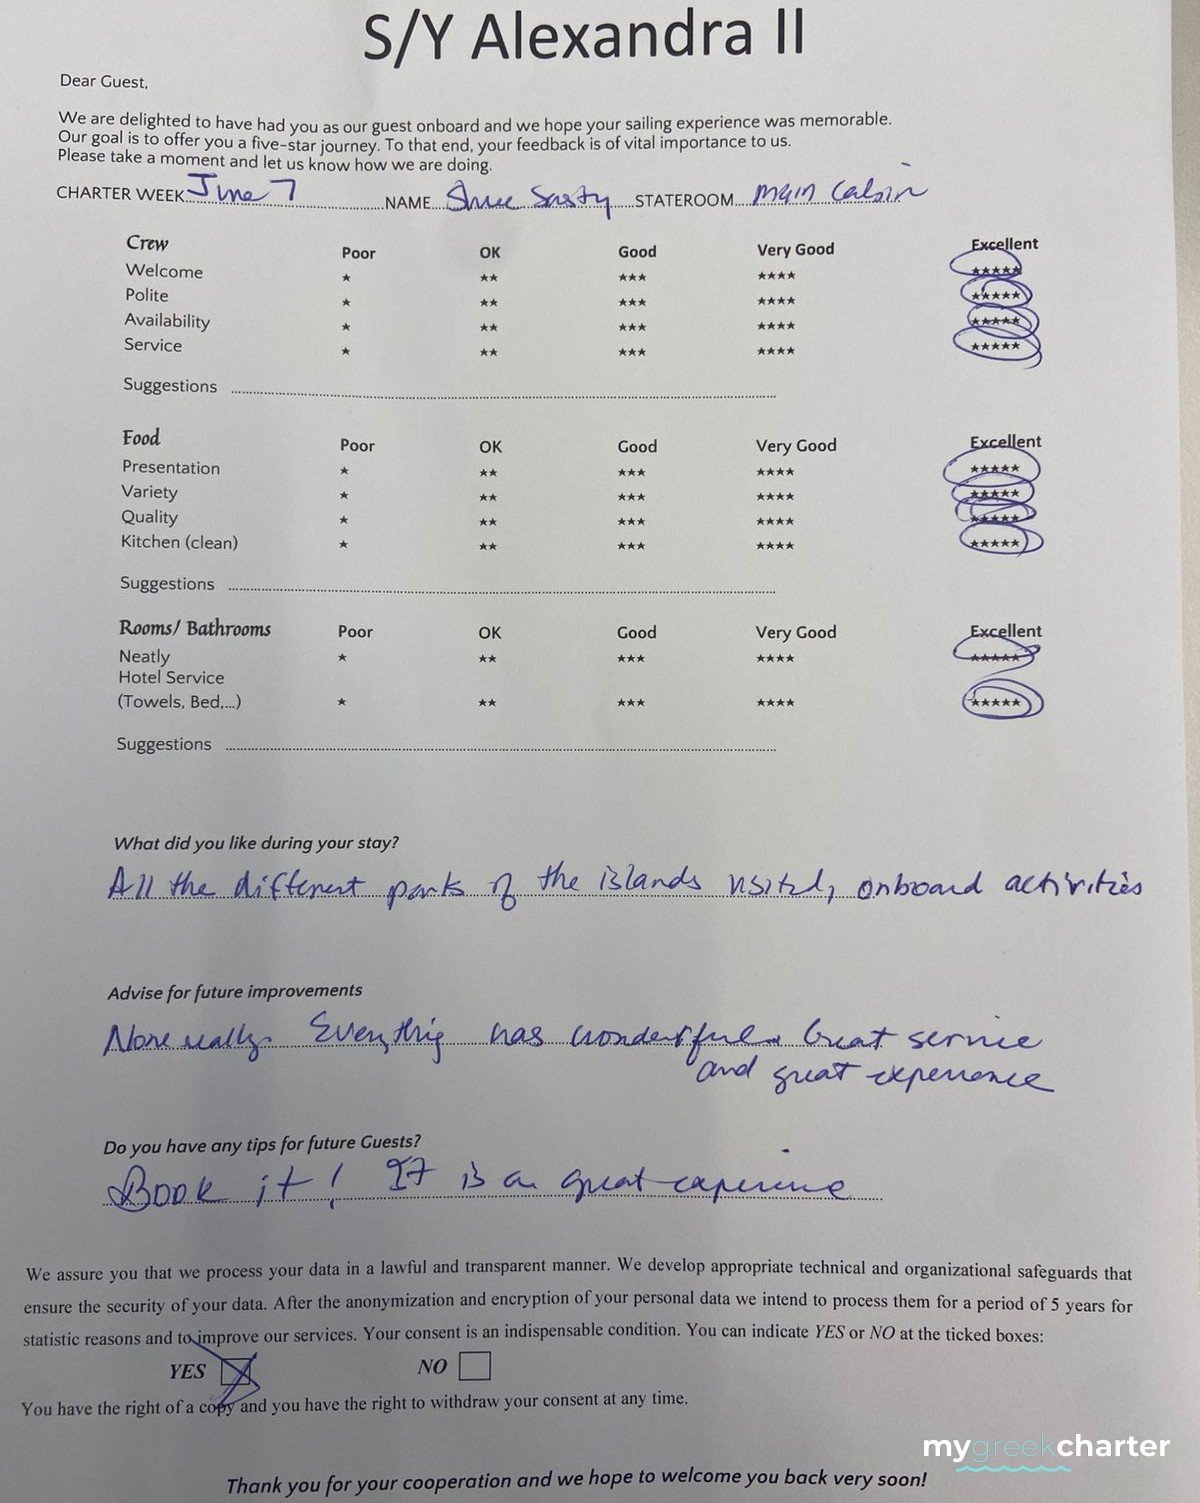 S/Y Alexandra II
Dear Guest,
We are delighted to have had you as our guest onboard and we hope your sailing experience was memorable.
Our goal is to offer you a five-star journey. To that end, your feedback is of vital importance to us.
Please take a moment and let us know how we are doing.
CHARTER WEEK June 7 NAME STATEROOM main cabin
Crew Poor OK Good Very Good Excellent
Welcome ★ ★★ ★★★ ★★★★ ★★★★★
Polite ★ ★★ ★★★ ★★★★ ★★★★★
Availability ★ ★★ ★★★ ★★★★ ★★★★★
Service ★ ★★ ★★★ ★★★★ ★★★★★
Suggestions
Food Poor OK Good Very Good Excellent
Presentation ★ ★★ ★★★ ★★★★ ★★★★★
Variety ★ ★★ ★★★ ★★★★ ★★★★★
Quality ★ ★★ ★★★ ★★★★ ★★★★★
Kitchen (clean) ★ ★★ ★★★ ★★★★ ★★★★★
Suggestions
Rooms/ Bathrooms Poor OK Good Very Good Excellent
Neatly ★ ★★ ★★★ ★★★★ ★★★★★
Hotel Service
(Towels, Bed,...) ★ ★★ ★★★ ★★★★ ★★★★★
Suggestions
What did you like during your stay?
All the different parts of the islands visited, onboard activities
Advise for future improvements
None really. Everything was wonderful. Great service
and great experience
Do you have any tips for future Guests?
Book it! It is an great experience
We assure you that we process your data in a lawful and transparent manner. We develop appropriate technical and organizational safeguards that
ensure the security of your data. After the anonymization and encryption of your personal data we intend to process them for a period of 5 years for
statistic reasons and to improve our services. Your consent is an indispensable condition. You can indicate YES or NO at the ticked boxes:
YES NO
You have the right of a copy and you have the right to withdraw your consent at any time.
mygreekcharter
Thank you for your cooperation and we hope to welcome you back very soon!